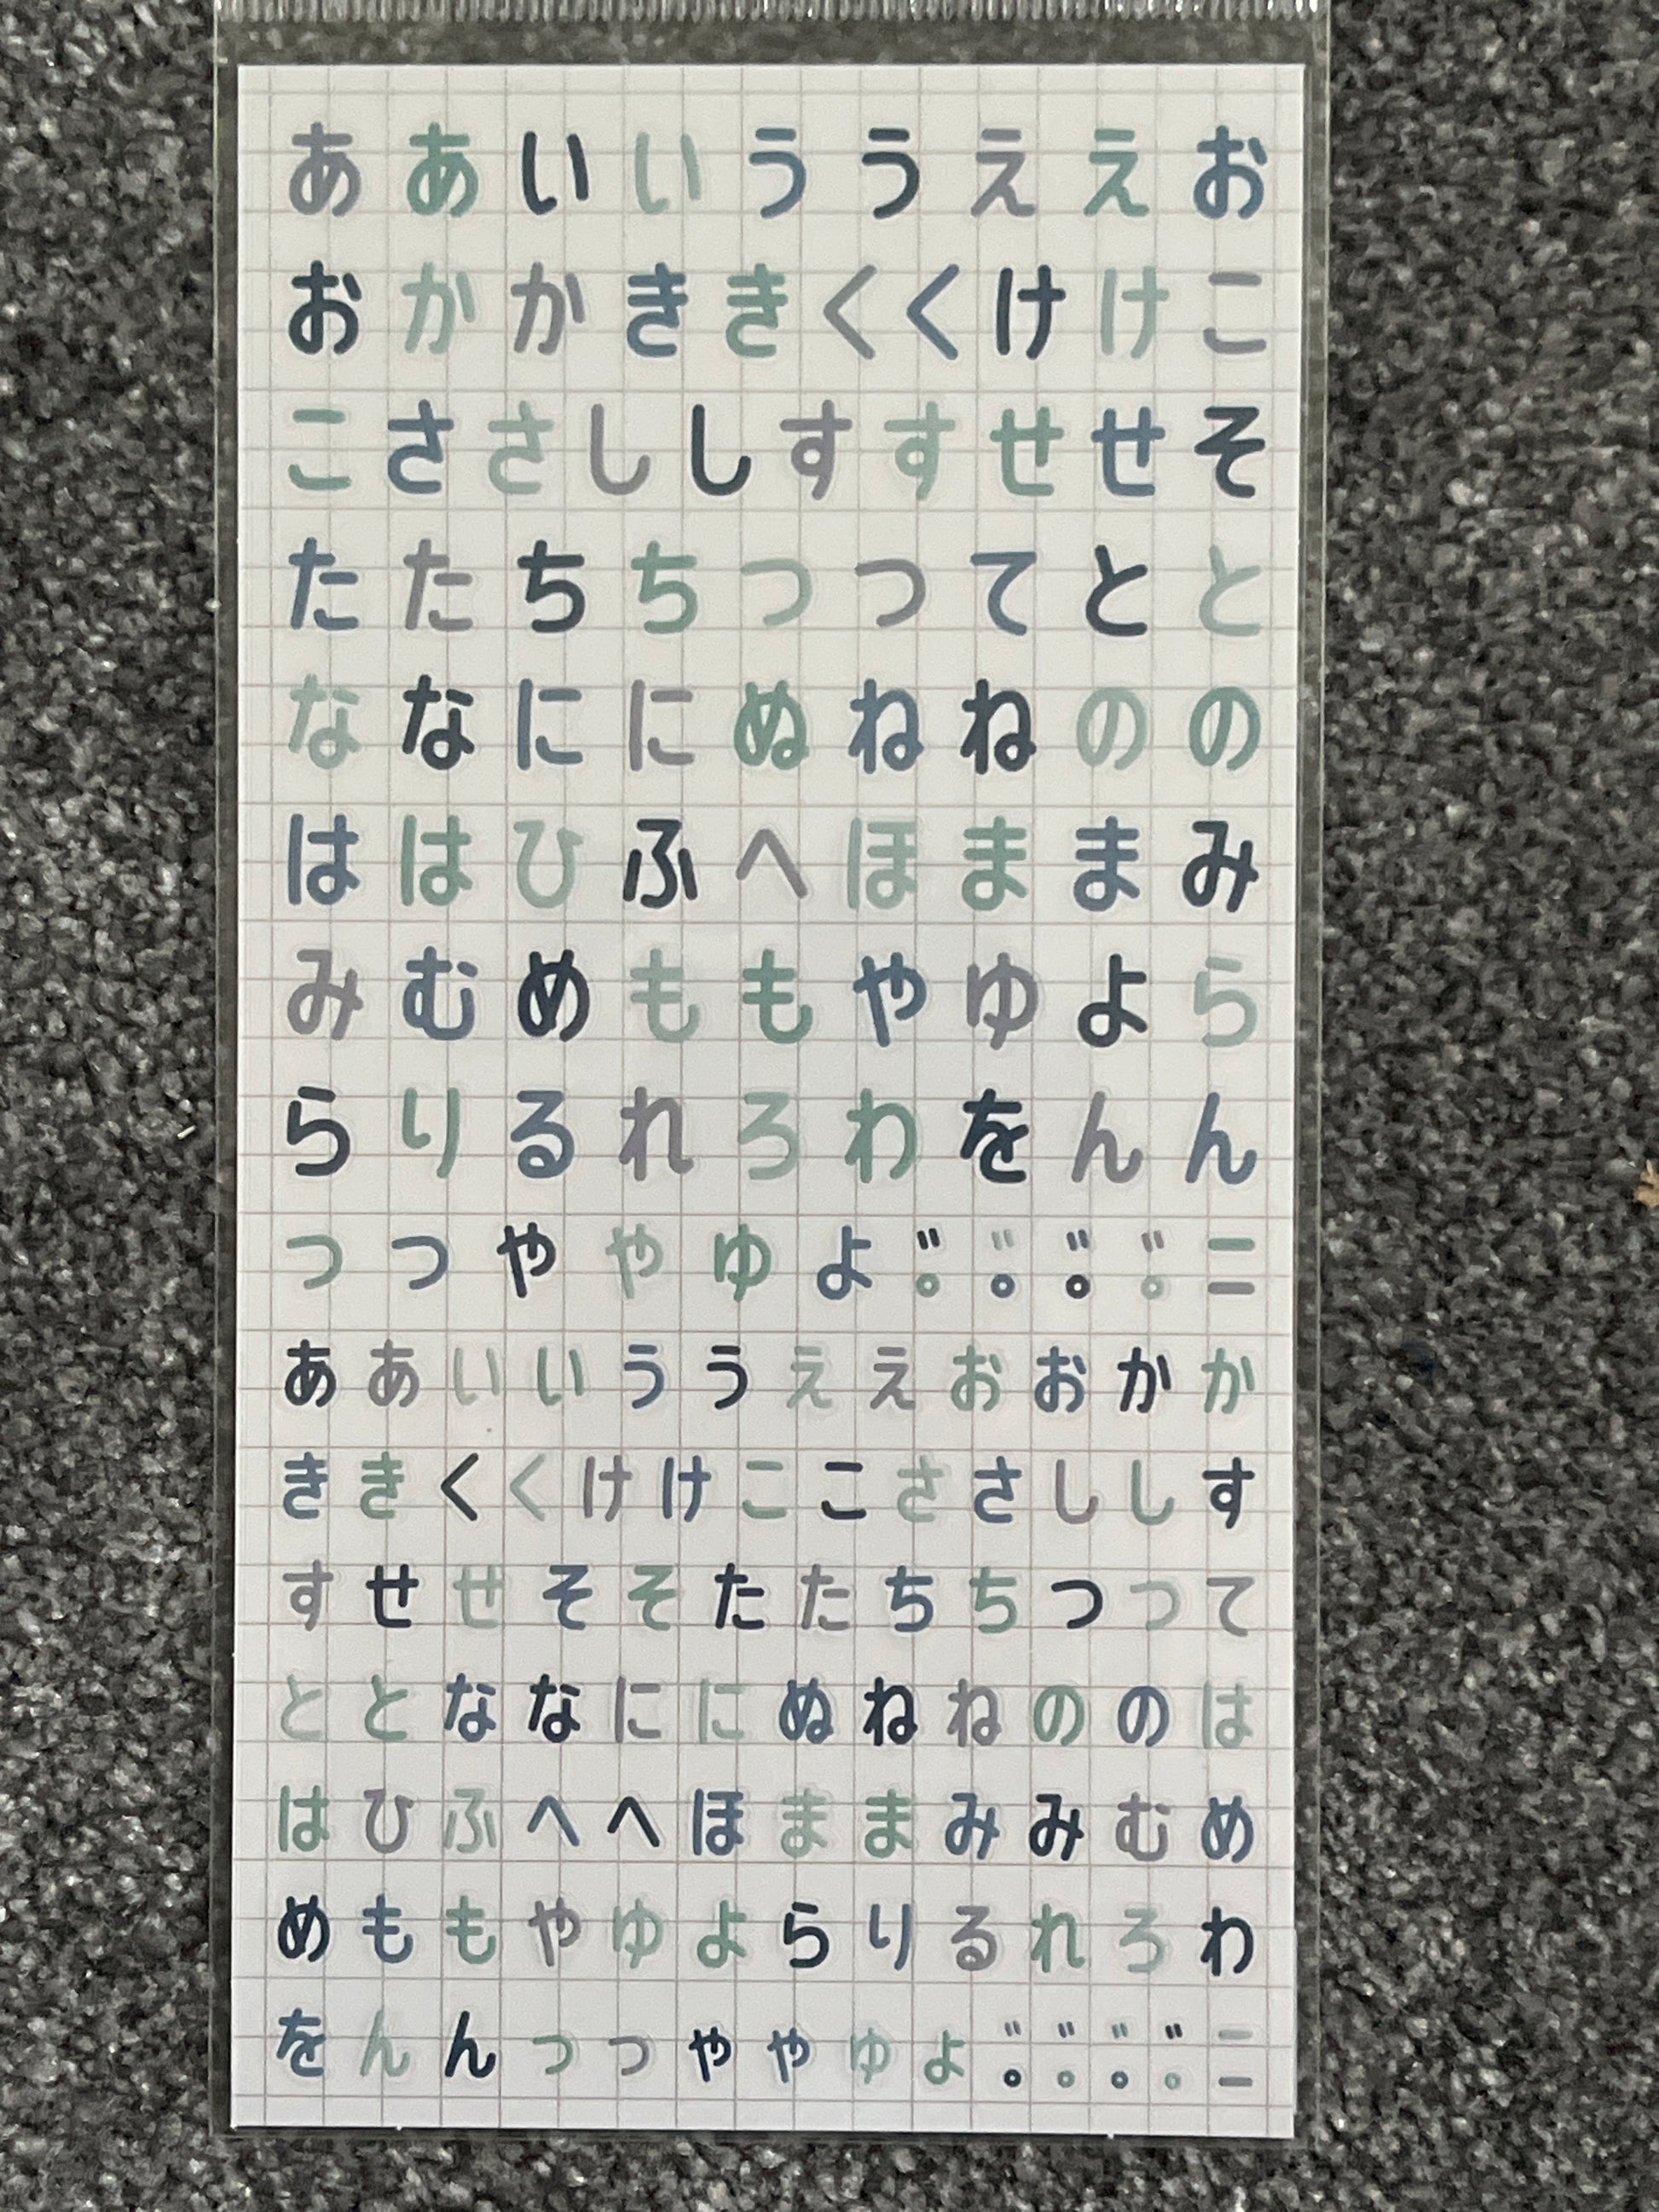 ああいいううええお
おかかききくくけけこ
こささししすすせせそ
たたちちつつてとと
ななににぬねねのの
ははひふへほままみ
みむめももやゆよら
らりるれろわをんん
っっゃゃゅょ゛゜゛゜゛゜゛゜ーー
ああいいううええおおかか
ききくくけけここささししす
すせせそそたたちちつつて
ととななににぬねねののは
はひふへへほままみみむめ
めももやゆよらりるれろわ
をんんっっゃゃゅょ゛゜゛゜゛゜゛゜ーー